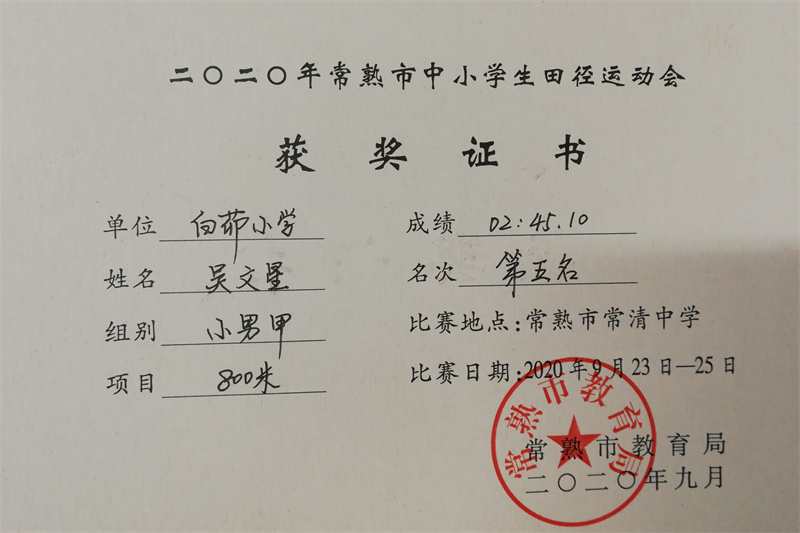 二〇二〇年常熟市中小学生田径运动会
获奖证书
单位 白茆小学
成绩 02:45.10
姓名 吴文星
名次 第五名
组别 小男甲
比赛地点:常熟市常清中学
项目 800米
比赛日期:2020年9月23日—25日
常熟市教育局
常熟市教育局
二〇二〇年九月